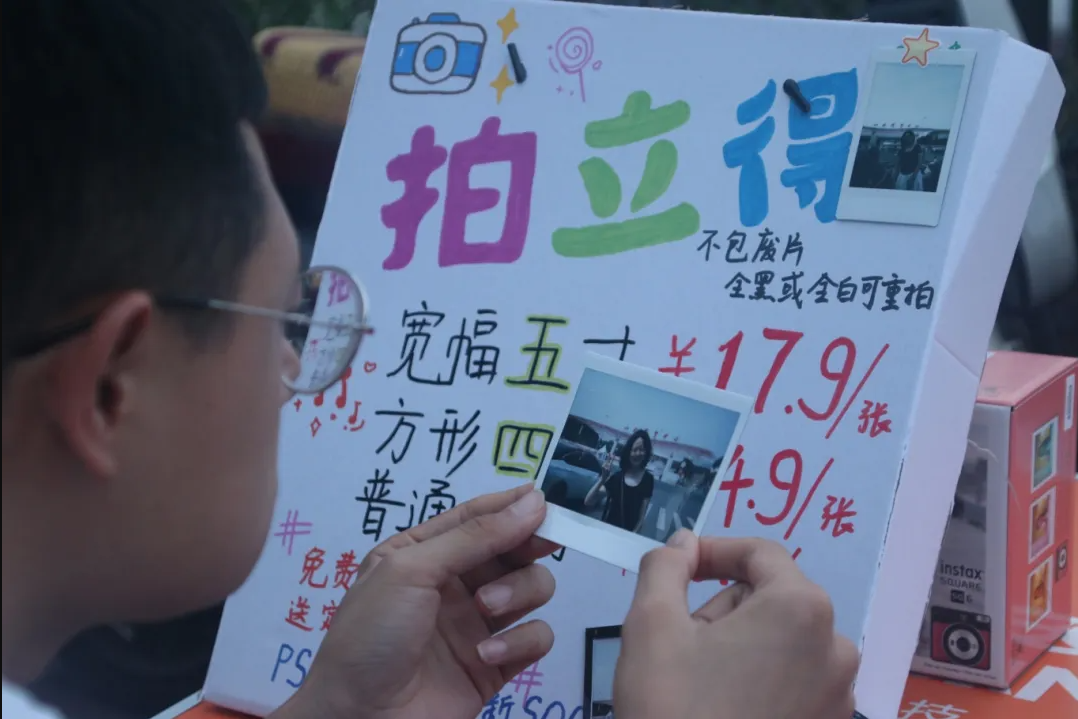 拍立得
不包废片
全黑或全白可重拍
宽幅五寸 ¥17.9/张
方形四 4.9/张
普通
免费
送
PS
instax
SQUARE
SQ6